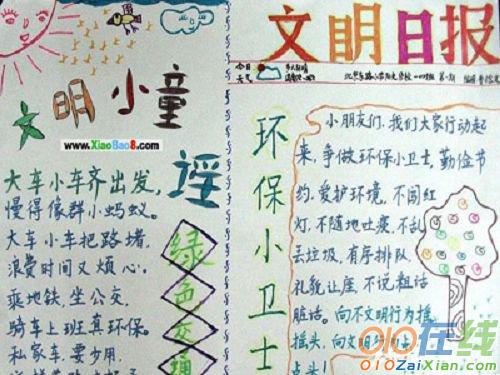 文明日报
文明小童谣
www.XiaoBao8.com
大车小车齐出发,
慢得像群小蚂蚁。
大车小车把路堵,
浪费时间又烦心。
乘地铁,坐公交,
骑车上班真环保。
私家车,要少用,
绿色交通
今日
天气
环保小卫士
小朋友们,我们大家行动起
来,争做环保小卫士,勤俭节
约,爱护环境,不闯红
灯,不随地吐痰,不乱
丢垃圾,有序排队,
礼貌让座,不说粗话
脏话。向不文明行为摇
摇头,向文明行为
点头!
010在线
010ZaiXian.com